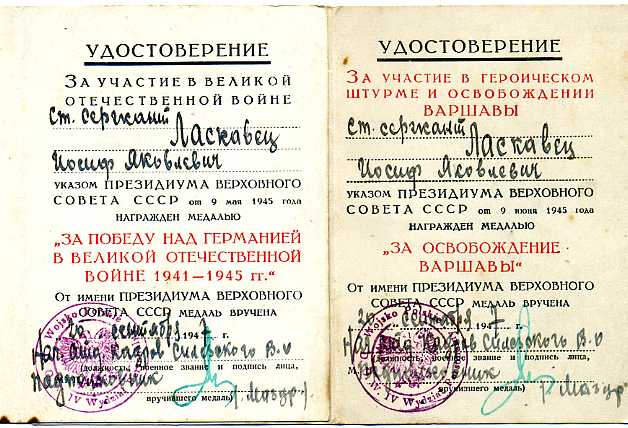 УДОСТОВЕРЕНИЕ
ЗА УЧАСТИЕ В ВЕЛИКОЙ
ОТЕЧЕСТВЕННОЙ ВОЙНЕ
ст. сержант
Ласкавец
Иосиф Яковлевич
УКАЗОМ ПРЕЗИДИУМА ВЕРХОВНОГО
СОВЕТА СССР от 9 мая 1945 года
НАГРАЖДЕН МЕДАЛЬЮ
„ЗА ПОБЕДУ НАД ГЕРМАНИЕЙ
В ВЕЛИКОЙ ОТЕЧЕСТВЕННОЙ
ВОЙНЕ 1941—1945 гг.“
ОТ ИМЕНИ ПРЕЗИДИУМА ВЕРХОВНОГО
СОВЕТА СССР МЕДАЛЬ ВРУЧЕНА
сентября 194 г.
Кадров Силезского В.О
(должность, военное звание и подпись лица,
подполковник
вручившего медаль)
Wojsko
IV Wydział
УДОСТОВЕРЕНИЕ
ЗА УЧАСТИЕ В ГЕРОИЧЕСКОМ
ШТУРМЕ И ОСВОБОЖДЕНИИ
ВАРШАВЫ
ст. сержант
Ласкавец
Иосиф Яковлевич
УКАЗОМ ПРЕЗИДИУМА ВЕРХОВНОГО
СОВЕТА СССР от 9 июня 1945 года
НАГРАЖДЕН МЕДАЛЬЮ
„ЗА ОСВОБОЖДЕНИЕ
ВАРШАВЫ“
ОТ ИМЕНИ ПРЕЗИДИУМА ВЕРХОВНОГО
СОВЕТА СССР МЕДАЛЬ ВРУЧЕНА
194
Кадров Силезского В.О
(должность, военное звание и подпись лица,
подполковник
вручившего медаль)
Wojsko Polskie
IV Wydział